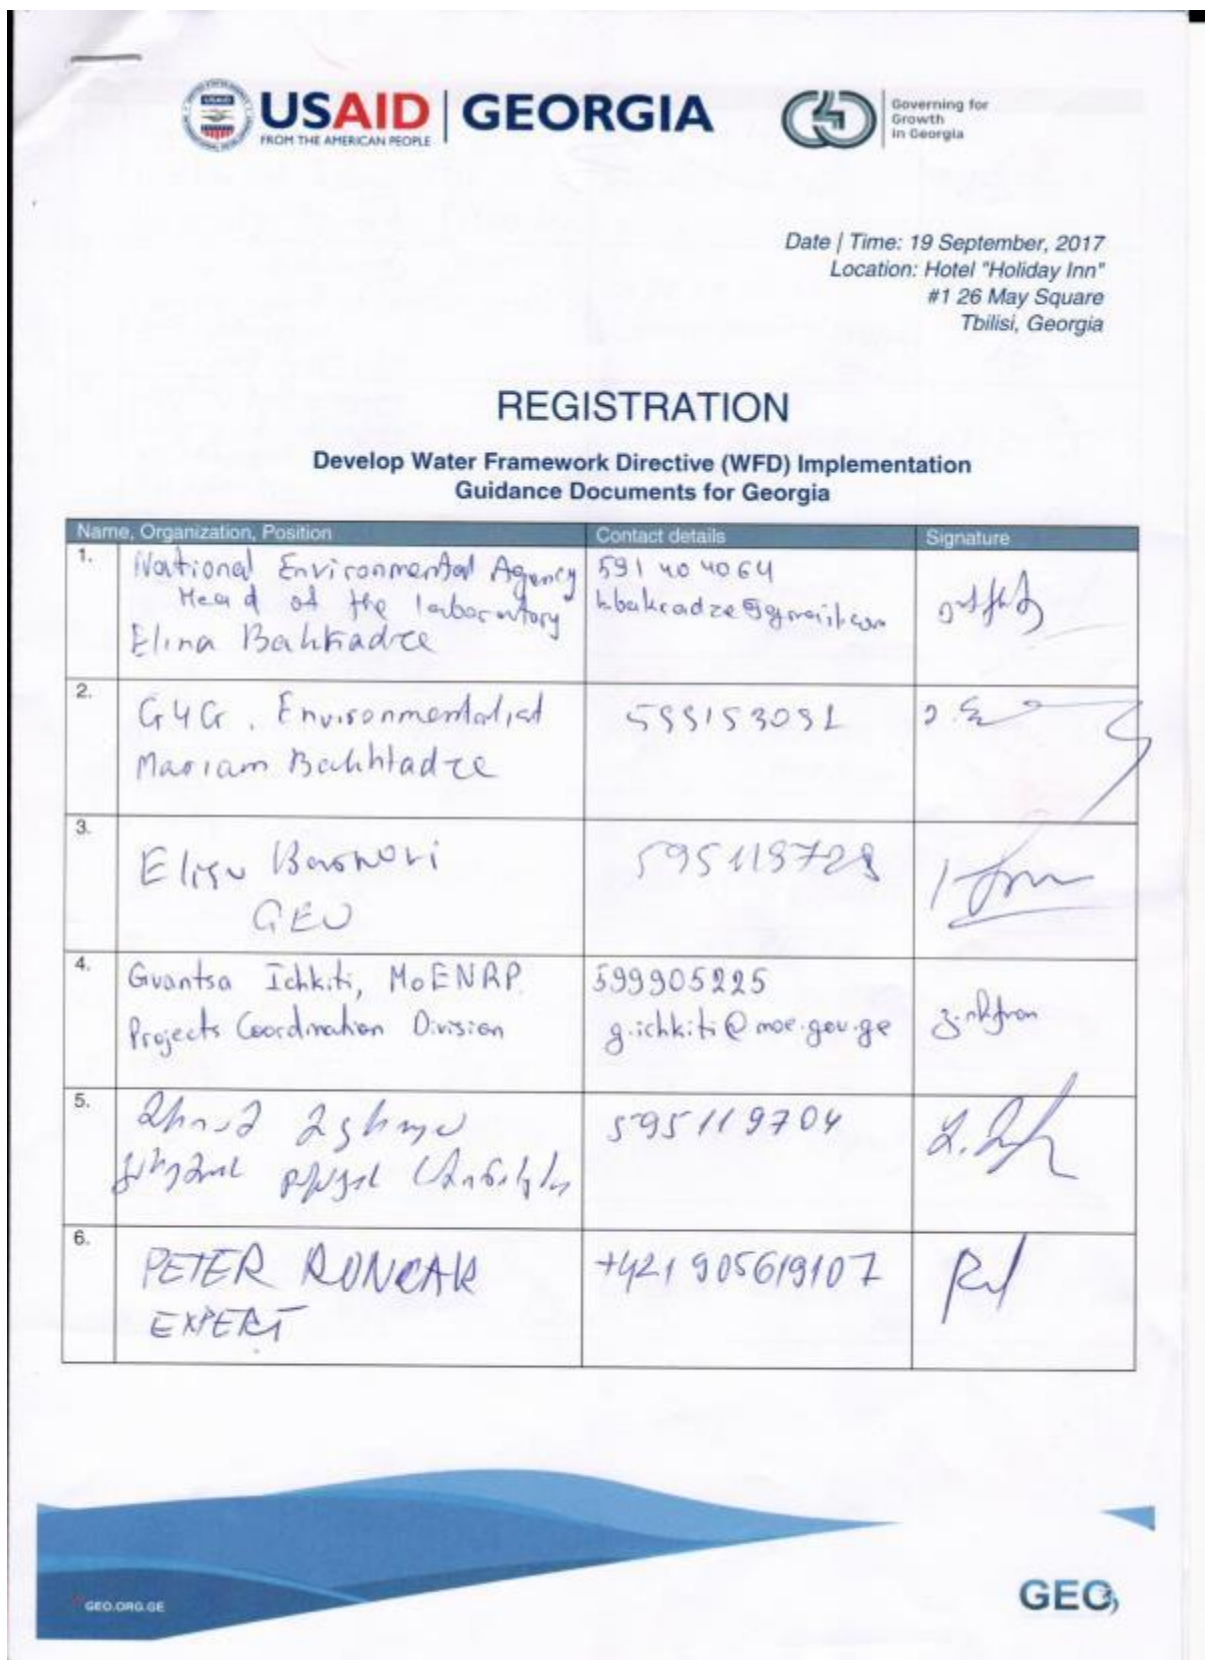 USAID | GEORGIA
FROM THE AMERICAN PEOPLE
Governing for
Growth
in Georgia
Date | Time: 19 September, 2017
Location: Hotel "Holiday Inn"
#1 26 May Square
Tbilisi, Georgia
REGISTRATION
Develop Water Framework Directive (WFD) Implementation
Guidance Documents for Georgia
Name, Organization, Position Contact details Signature
1. National Environmental Agency 591 40 40 64
Head of the laboratory
Elina Bakhradze
2. G4G. Environmentalist 599153091
Mariam Bakhtadze
3. 595119729
GEO
4. Gvantsa Ichkiti, MoENRP. 599905225
Projects Coordination Division g.ichkiti@moe.gov.ge
5. 595119704
6. PETER RONCAK +421 905619107
EXPERT
GEO.ORG.GE
GEO